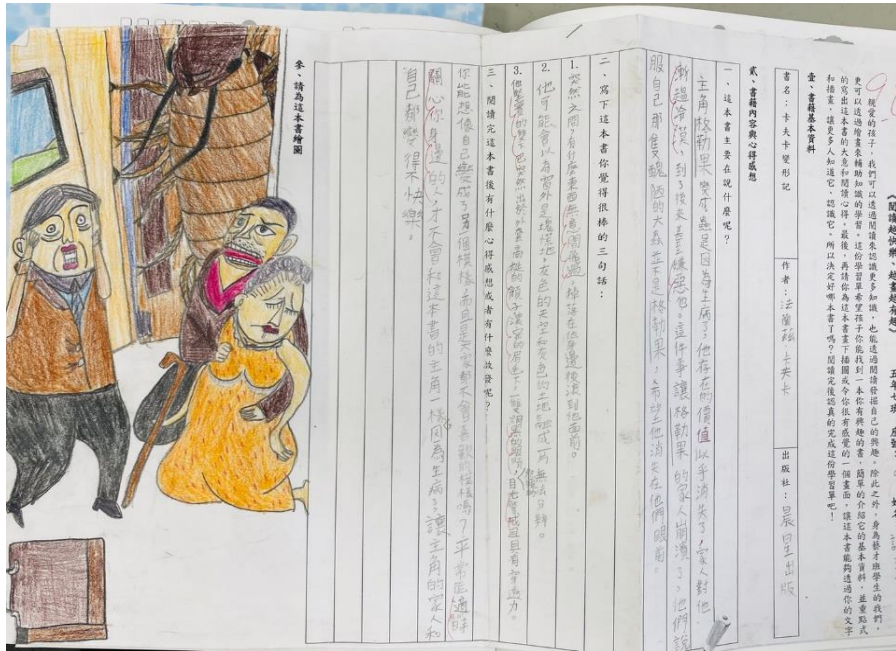 《閱讀越快樂、越畫越有趣》 五年七班 座號： 姓名
98
親愛的孩子，我們可以透過閱讀來認識更多知識，也能透過閱讀發掘自己的興趣。除此之外，身為藝才班學生的我們，
更可以透過繪畫來輔助知識的學習。這份學習單希望孩子你能找到一本你有興趣的書，簡單的介紹它的基本資料，並重點式
的寫出這本書的大意和閱讀心得。最後，再請你為這本書畫下插圖或令你很有感覺的一個畫面，讓這本書能夠透過你的文字
和插畫，讓更多人知道它、認識它。所以決定好哪本書了嗎？閱讀完後認真的完成這份學習單吧！
壹、書籍基本資料
書名：卡夫卡變形記
作者：法蘭茲·卡夫卡
出版社：晨星出版
貳、書籍內容與心得感想
一、這本書主要在說什麼呢？
主角格勒果變成蟲是因為生病了，他存在的價值以乎消失了，家人對他
漸趨冷漠，到了後來甚至嫌惡他。這件事讓格勒果的家人崩潰了，他們說
服自己那隻醜陋的大蟲並不是格勒果，希望他消失在他們眼前。
二、寫下這本書你覺得很棒的三句話：
1. 突然之間，有什麼東西無意間飛過，掉落在他身邊後滾到他面前。
2. 他可能會以為窗外是塊荒地，灰色的天空和灰色的土地融成一片，無法分辨。
3. 他堅實的雙下巴突然出於外套高挺的領子，濃密的眉毛下，一雙黑的眼睛，目光警戒且具有穿透力。
三、閱讀完這本書後有什麼心得感想或者有什麼啟發呢？
你能想像自己變成了另一個模樣，而且是大家都不會喜歡的模樣嗎？平常應適時
關心你身邊的人，才不會和這本書的主角一樣，因為生病了，讓主角的家人和
自己都變得不快樂。
參、請為這本書繪圖